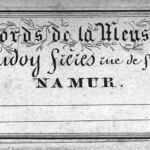 ords de la Meus
udoy frères rue de f
NAMUR.